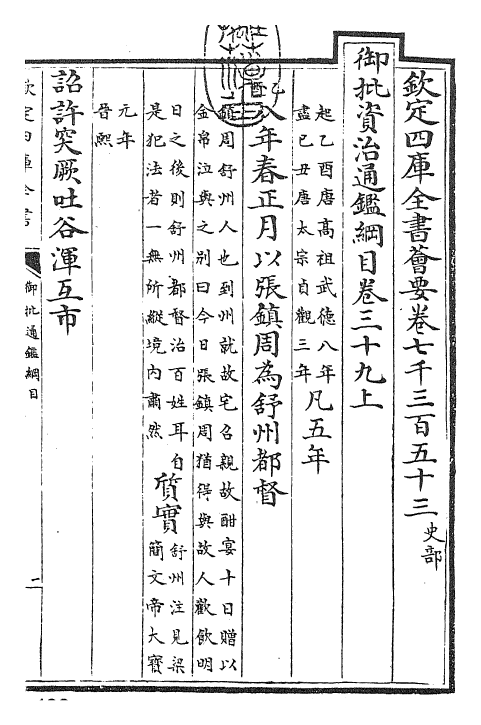 欽定四庫全書薈要卷七千三百五十三 史部
御批資治通鑑綱目卷三十九上
起乙酉唐高祖武德八年
盡己丑唐太宗貞觀三年
凡五年
乙酉
八年春正月以張鎮周為舒州都督
鎮周舒州人也到州就故宅召親故酣宴十日贈以
金帛泣與之别曰今日張鎮周猶得與故人歡飲明
日之後則舒州都督治百姓耳自
是犯法者一無所縱境内肅然
質實
舒州注見梁
簡文帝大寶
元年
晉熙
詔許突厥吐谷渾互市
欽定四庫全書
御批通鑑綱目
二